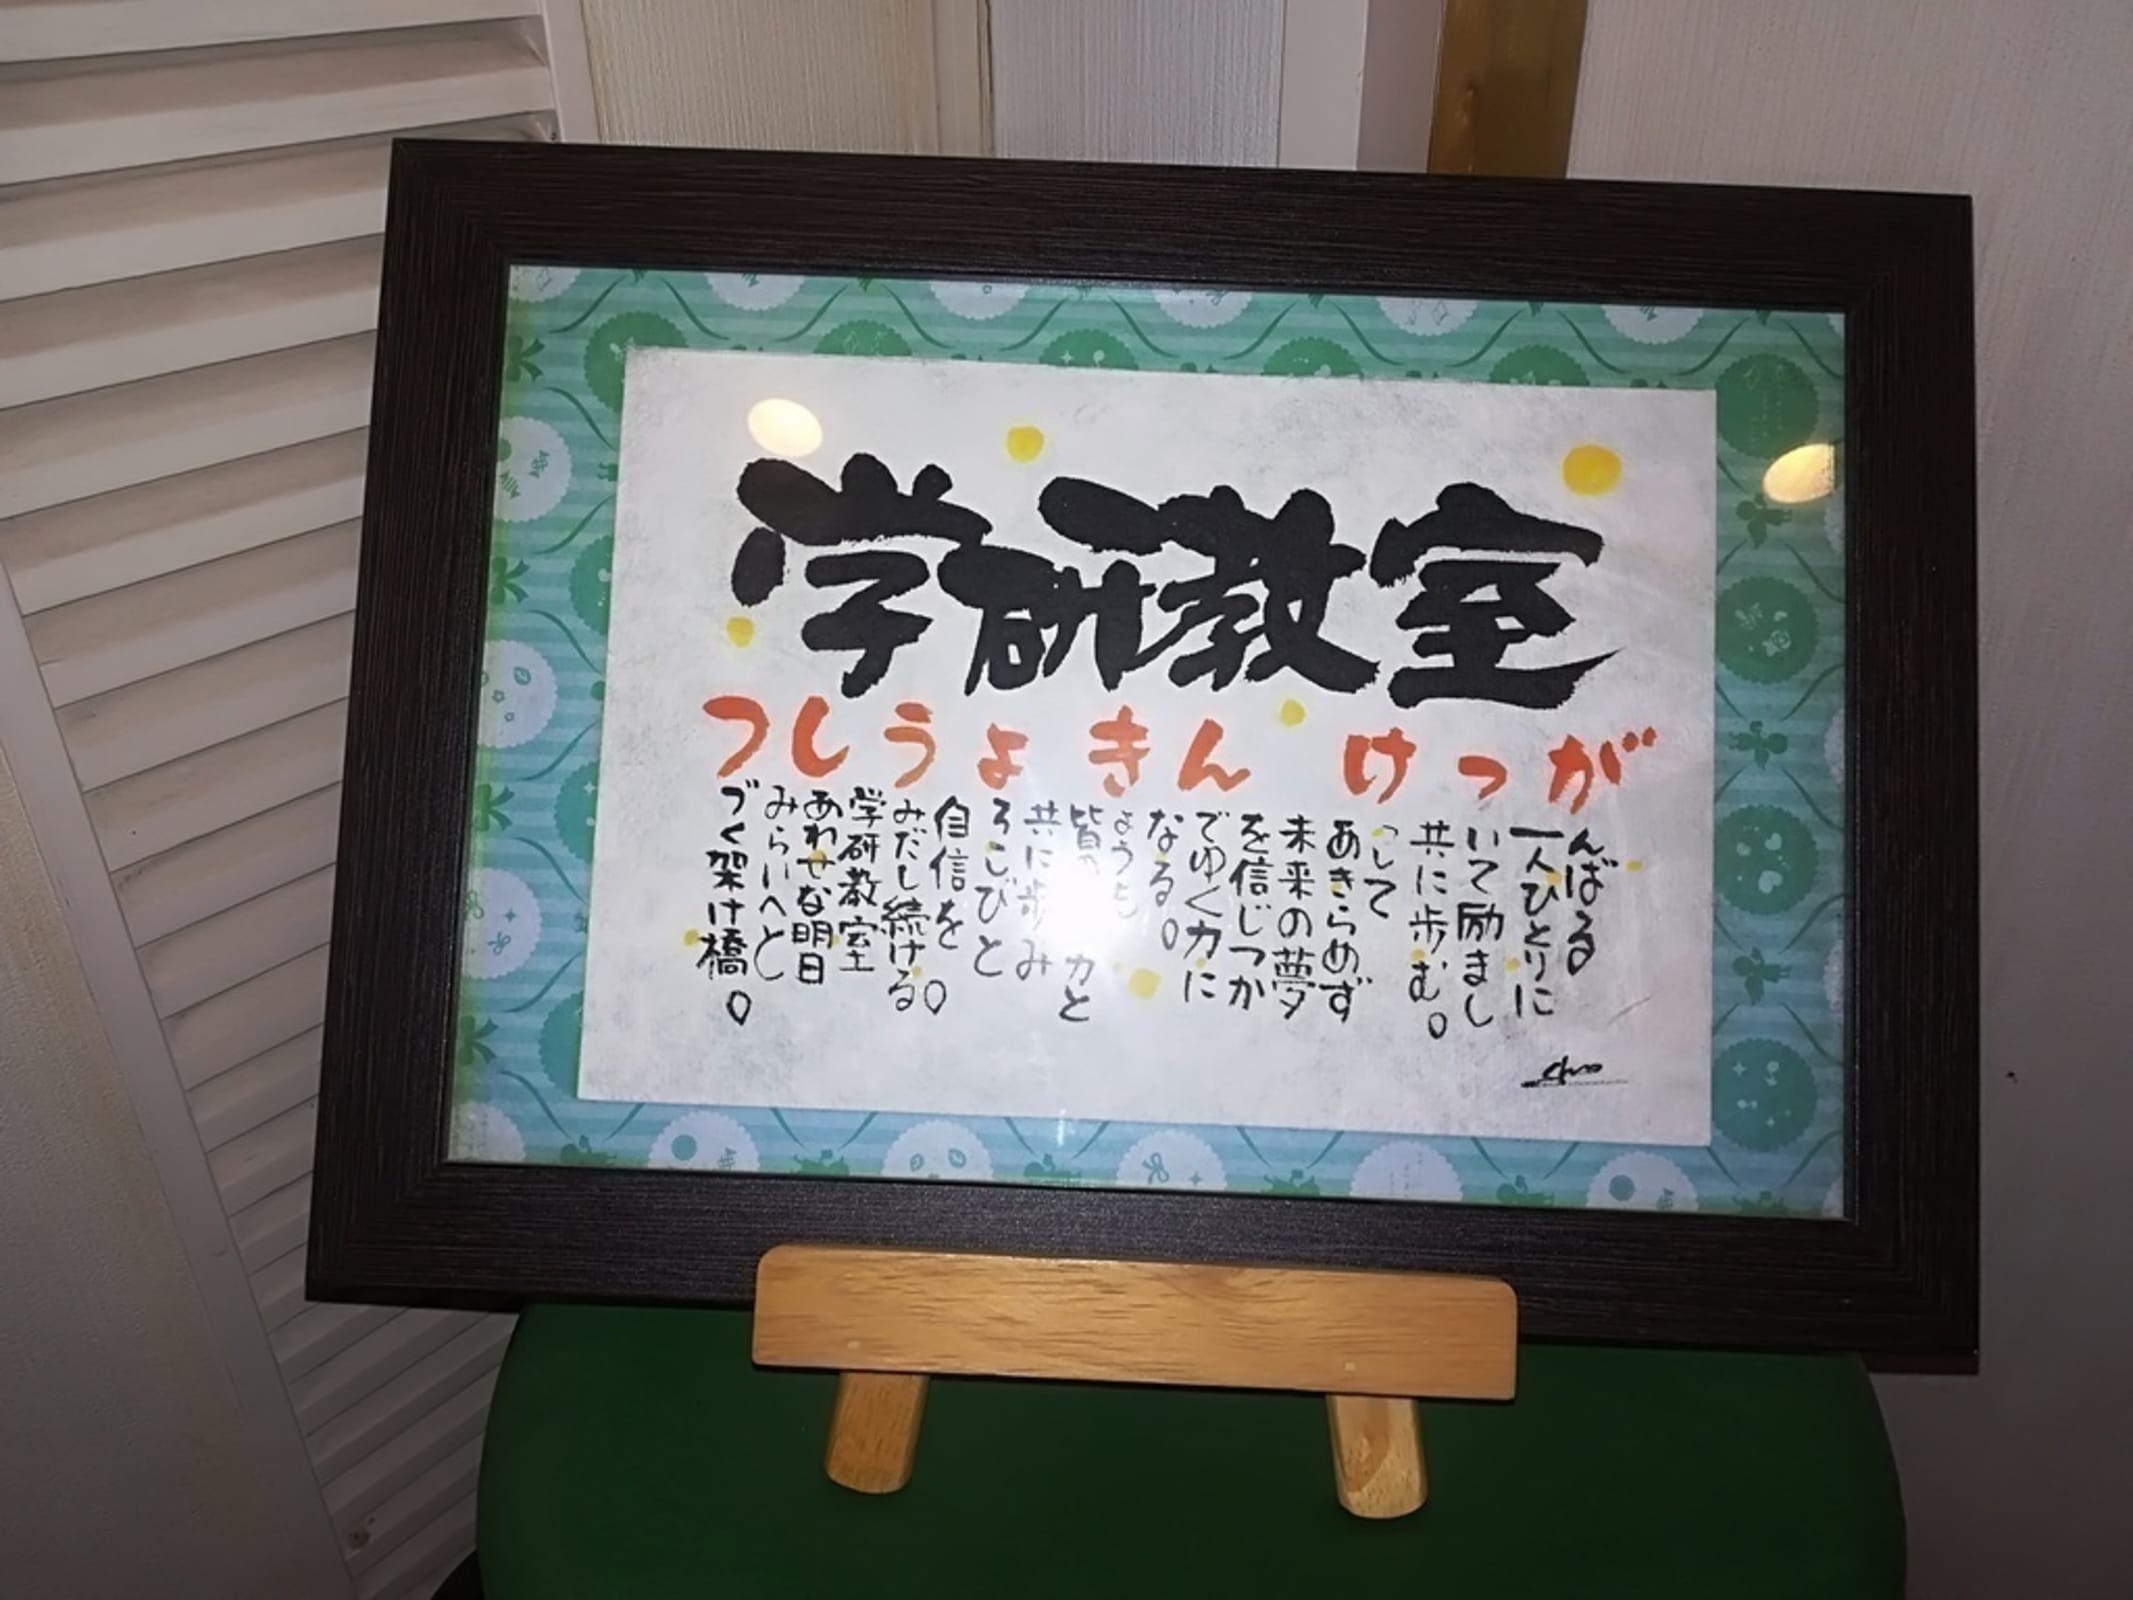 学研教室
がっけんきょうしつ
んばる
一人ひとりに
いて励まし
共に歩む。
っして
あきらめず
未来の夢
を信じつか
でゆく力に
なる。
ょうも
皆 力と
共に歩み
ろこびと
自信を
みだし続ける。
学研教室
あわせな明日
みらいへと
づく架け橋。